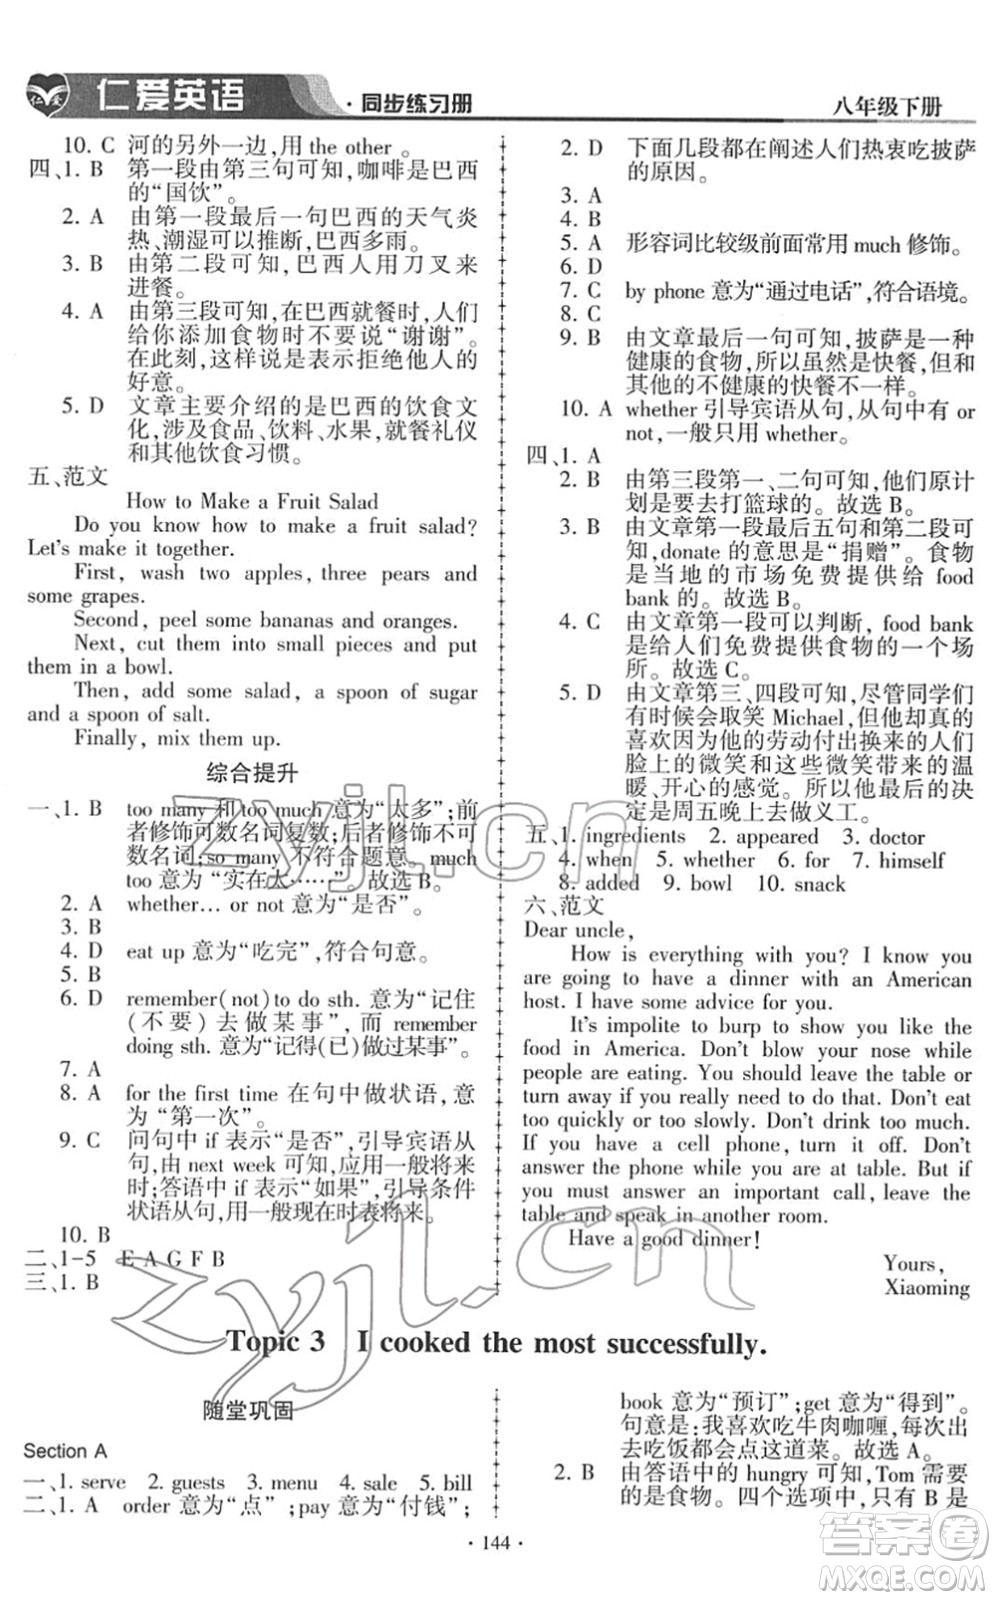 仁爱
仁爱英语
·同步练习册
八年级下册
10. C 河的另外一边,用 the other 。
四、1. B 第一段由第三句可知,咖啡是巴西
的“国饮”。
2. A 由第一段最后一句巴西的天气炎
热、潮湿可以推断,巴西多雨。
3. B 由第二段可知,巴西人用刀叉来
进餐。
4. A 由第三段可知,在巴西就餐时,人们
给你添加食物时不要说“谢谢”。
在此刻,这样说是表示拒绝他人的
好意。
5. D 文章主要介绍的是巴西的饮食文
化,涉及食品、饮料、水果,就餐礼仪
和其他饮食习惯。
五、范文
How to Make a Fruit Salad
Do you know how to make a fruit salad?
Let's make it together.
First, wash two apples, three pears and
some grapes.
Second, peel some bananas and oranges.
Next, cut them into small pieces and put
them in a bowl.
Then, add some salad, a spoon of sugar
and a spoon of salt.
Finally, mix them up.
综合提升
一、1. B too many 和 too much 意为“太多”;前
者修饰可数名词复数;后者修饰不可
数名词;so many 不符合题意。much
too 意为“实在太……”。故选 B。
2. A whether… or not 意为“是否”。
3. B
4. D eat up 意为“吃完”,符合句意。
5. B
6. D remember(not)to do sth. 意为“记住
(不要)去做某事”,而 remember
doing sth. 意为“记得(已)做过某事”。
7. A
8. A for the first time 在句中做状语,意
为“第一次”。
9. C 问句中 if 表示“是否”,引导宾语从
句,由 next week 可知,应用一般将来
时;答语中 if 表示“如果”,引导条件
状语从句,用一般现在时表将来。
10. B
二、1-5 E A G F B
三、1. B
2. D 下面几段都在阐述人们热衷吃披萨
的原因。
3. A
4. B
5. A 形容词比较级前面常用 much 修饰。
6. D
7. C by phone 意为“通过电话”,符合语境。
8. C
9. B 由文章最后一句可知,披萨是一种
健康的食物,所以虽然是快餐,但和
其他的不健康的快餐不一样。
10. A whether 引导宾语从句,从句中有 or
not,一般只用 whether。
四、1. A
2. B 由第三段第一、二句可知,他们原计
划是要去打篮球的。故选 B。
3. B 由文章第一段最后五句和第二段可
知,donate 的意思是“捐赠”。食物
是当地的市场免费提供给 food
bank 的。故选 B。
4. C 由文章第一段可以判断, food bank
是给人们免费提供食物的一个场
所。故选 C。
5. D 由文章第三、四段可知,尽管同学们
有时候会取笑 Michael,但他却真的
喜欢因为他的劳动付出换来的人们
脸上的微笑和这些微笑带来的温
暖、开心的感觉。所以他最后的决
定是周五晚上去做义工。
五、1. ingredients 2. appeared 3. doctor
4. when 5. whether 6. for 7. himself
8. added 9. bowl 10. snack
六、范文
Dear uncle,
How is everything with you? I know you
are going to have a dinner with an American
host. I have some advice for you.
It's impolite to burp to show you like the
food in America. Don't blow your nose while
people are eating. You should leave the table or
turn away if you really need to do that. Don't eat
too quickly or too slowly. Don't drink too much.
If you have a cell phone, turn it off. Don't
answer the phone while you are at table. But if
you must answer an important call, leave the
table and speak in another room.
Have a good dinner!
Yours,
Xiaoming
Topic 3 I cooked the most successfully.
随堂巩固
Section A
一、1. serve 2. guests 3. menu 4. sale 5. bill
二、1. A order 意为“点”;pay 意为“付钱”;
book 意为“预订”;get 意为“得到”。
句意是:我喜欢吃牛肉咖喱,每次出
去吃饭都会点这道菜。故选 A。
2. B 由答语中的 hungry 可知,Tom 需要
的是食物。四个选项中,只有 B 是
· 144 ·
zyjl.cn
zyjl.cn
答案圈
MXQE.COM